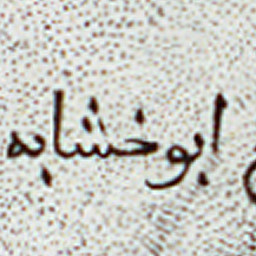 ابوخشابه